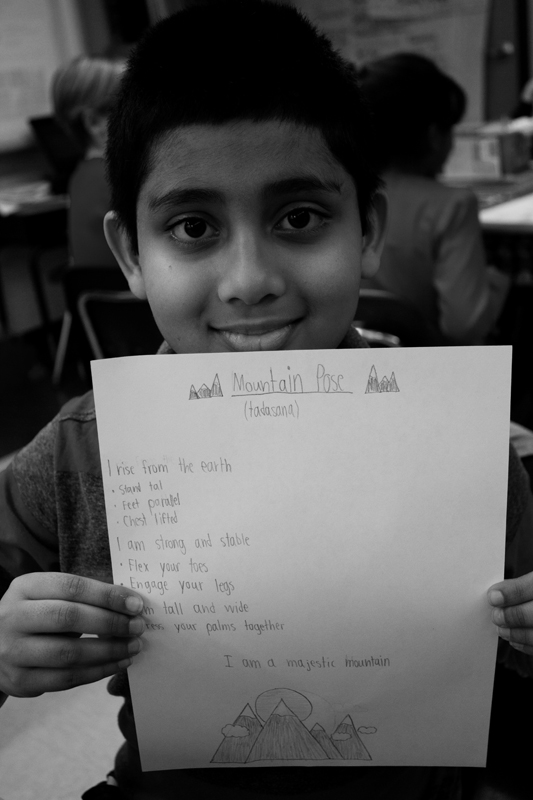 Mountain Pose
(tadasana)
I rise from the earth
• Stand tal
• Feet parallel
• Chest lifted
I am strong and stable
• Flex your toes
• Engage your legs
tall and wide
your palms together
I am a majestic mountain